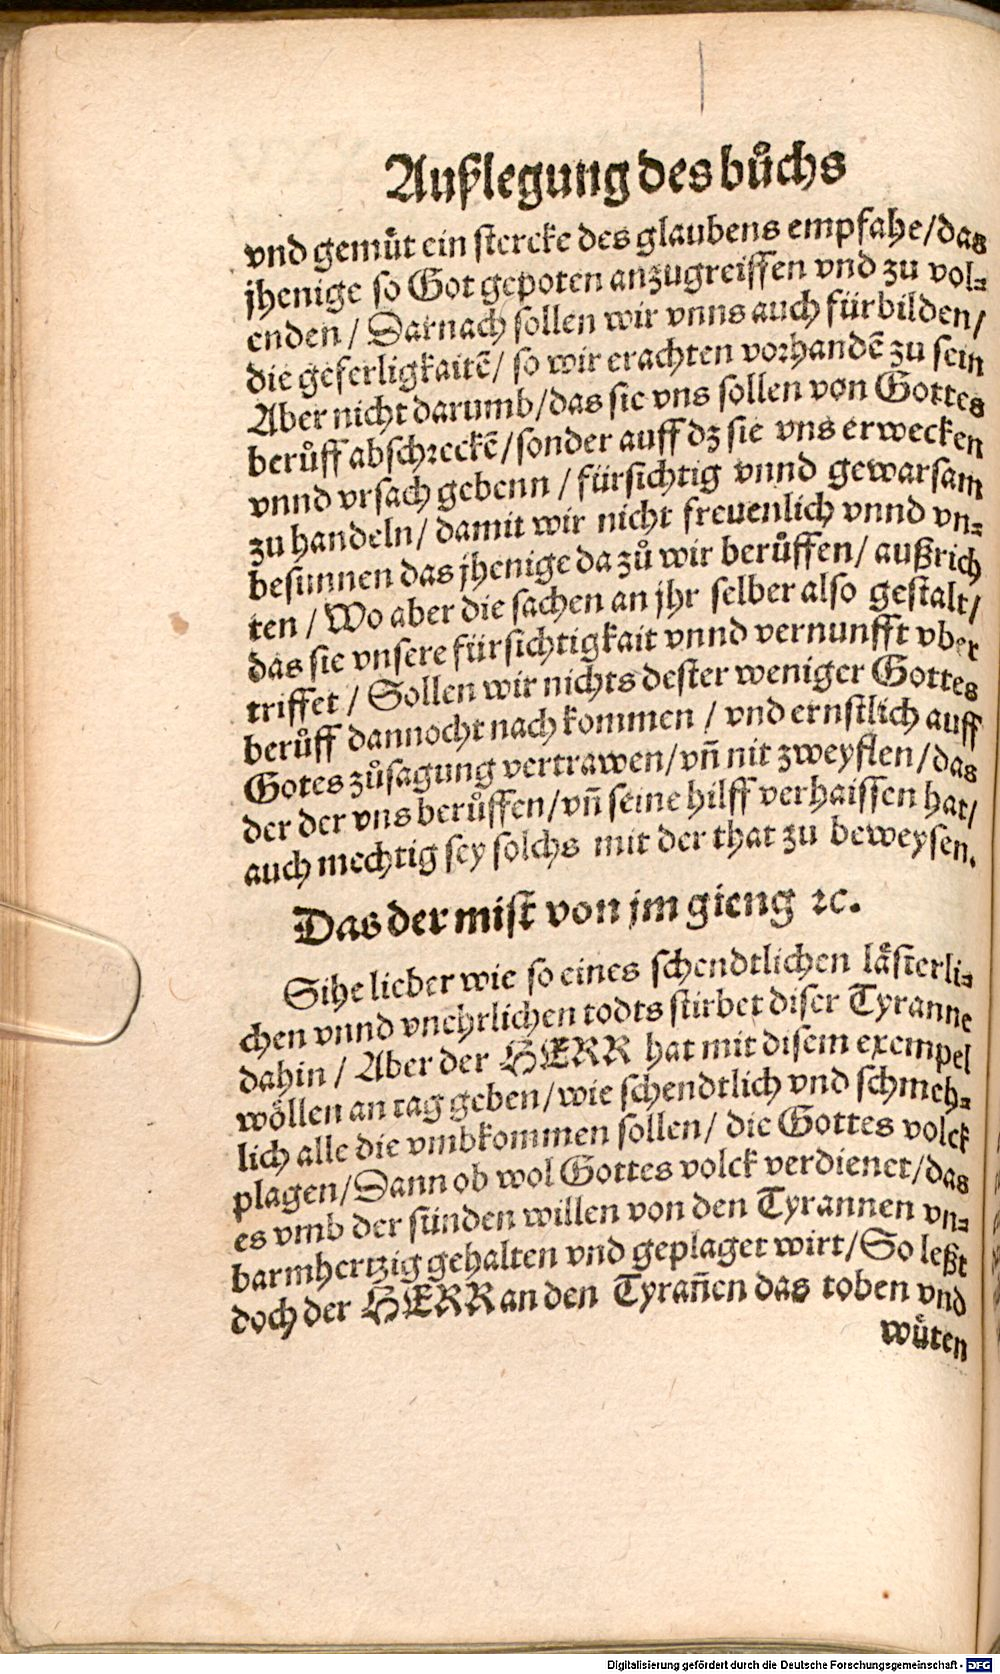 Außlegung des bůchs
vnd gemůt ein stercke des glaubens empfahe/das
jhenige so Got gepoten anzugreiffen vnd zu vol⸗
enden / Darnach sollen wir vnns auch fürbilden/
die geferligkaitē/ so wir erachten vorhandē zu sein
Aber nicht darumb/das sie vns sollen von Gottes
berůff abschreckē/sonder auff dz sie vns erwecken
vnnd vrsach gebenn / fürsichtig vnnd gewarsam
zu handeln/ damit wir nicht freuenlich vnnd vn⸗
besunnen das jhenige da zů wir berůffen/ außrich
ten / Wo aber die sachen an jhr selber also gestalt/
das sie vnsere fürsichtigkait vnnd vernunfft vber
triffet / Sollen wir nichts dester weniger Gottes
berůff dannocht nach kommen / vnd ernstlich auff
Gotes zůsagung vertrawen/vñ nit zweyflen/das
der der vns berůffen/vñ seine hilff verhaissen hat/
auch mechtig sey solchs mit der that zu beweysen.
Das der mist von jm gieng ꝛc.
Sihe lieber wie so eines schendtlichen lästerli⸗
chen vnnd vnehrlichen todts stirbet diser Tyranne
dahin / Aber der HERR hat mit disem exempel
wöllen an tag geben/wie schendtlich vnd schmeh⸗
lich alle die vmbkommen sollen/ die Gottes volck
plagen/Dann ob wol Gottes volck verdienet/das
es vmb der sünden willen von den Tyrannen vn⸗
barmhertzig gehalten vnd geplaget wirt/So leßt
doch der HERR an den Tyrañen das toben vnd
wůten
Digitalisierung gefördert durch die Deutsche Forschungsgemeinschaft - DFG